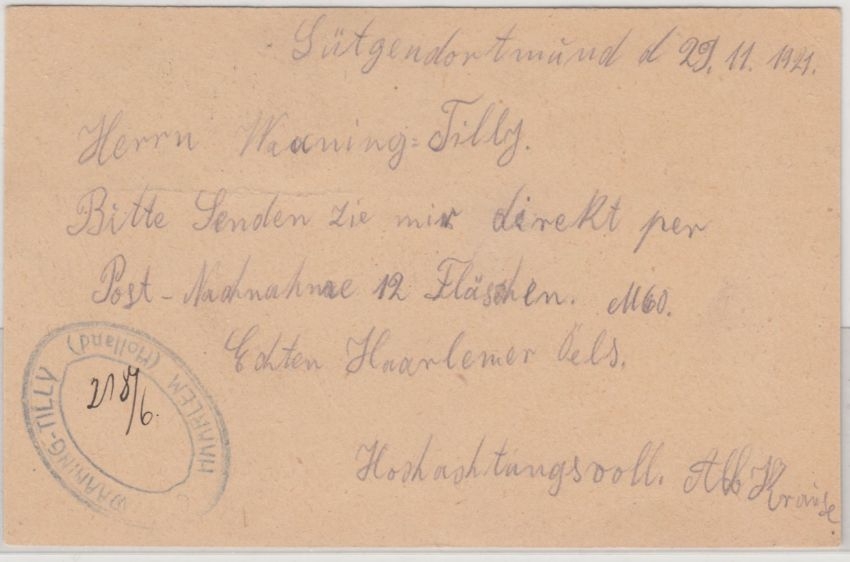 Lütgendortmund d 29. 11. 1921.
Herrn Waaning=Tilly.
Bitte Senden Zie mir direkt per
Post-Nachnahme 12 Fläschen. M60.
Echten Haarlemer Oels.
Hochachtungsvoll. Alb Krause.
WAANING-TILLY HAARLEM (Holland)